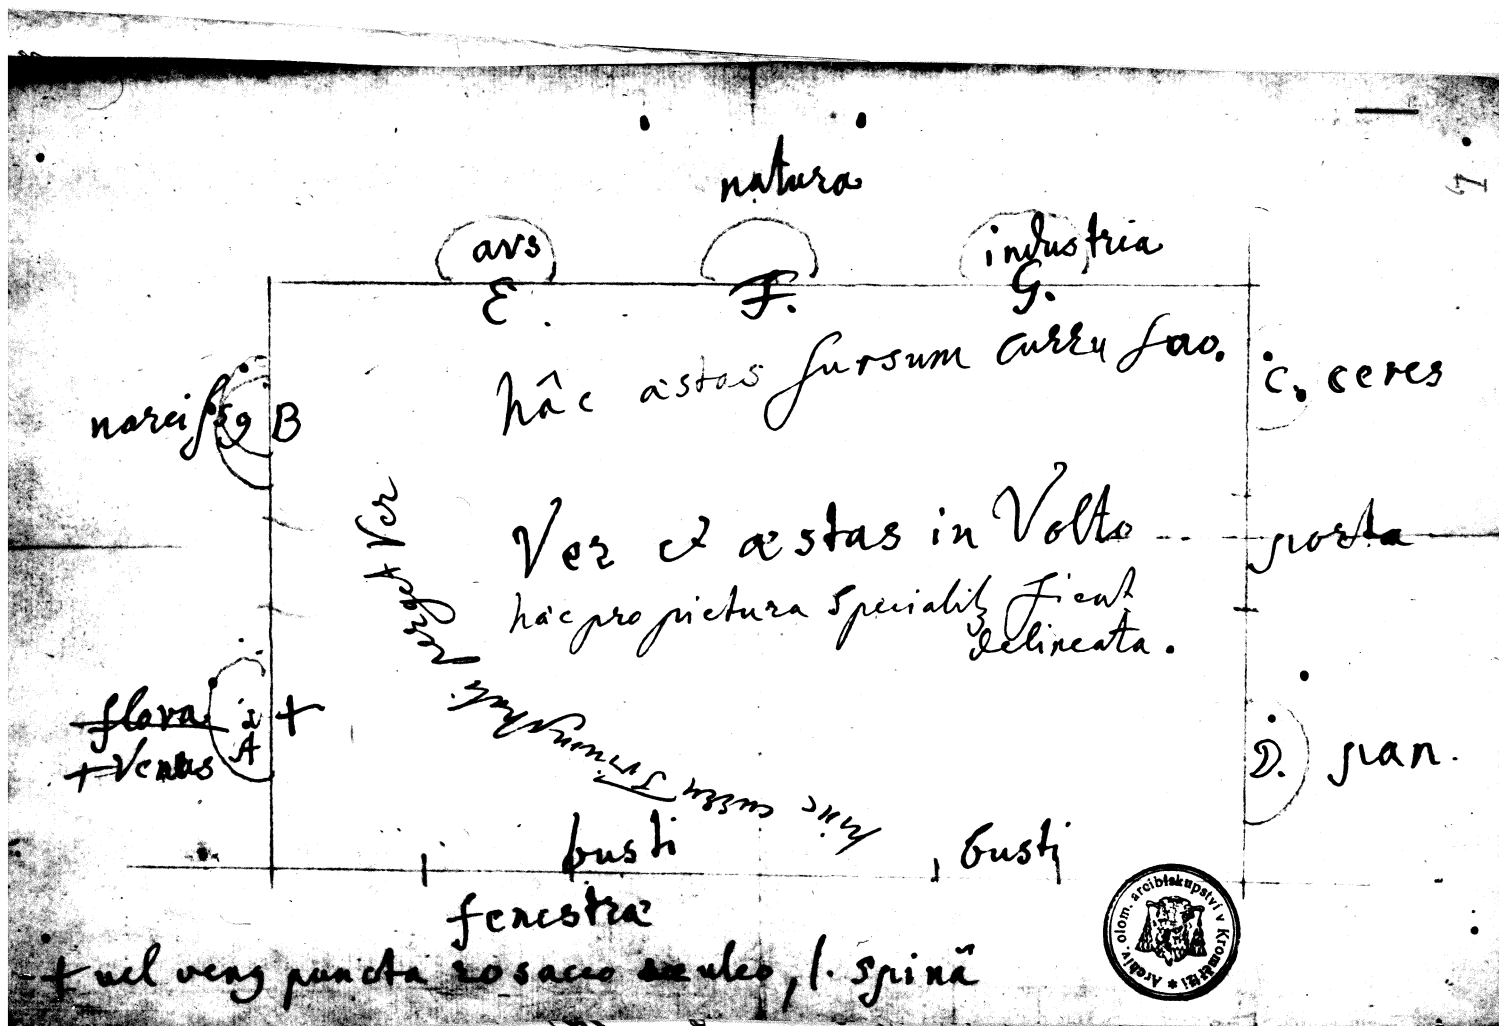 1.
natura
ars
industria
E.
F.
G.
hâc æstas sursum curru suo.
C. ceres
narcissq B
Ver et æstas in Volto
porta
hæc pro pictura specialit fient
delineata.
perget Ver
hinc curru
flora
+ Venus
A
+
D. pan.
busti
busti
fenestræ
+ vel veng puncta rosaceo aculeo, l. spinâ
Archiv. olom. arcibiskupství v Kroměříži *